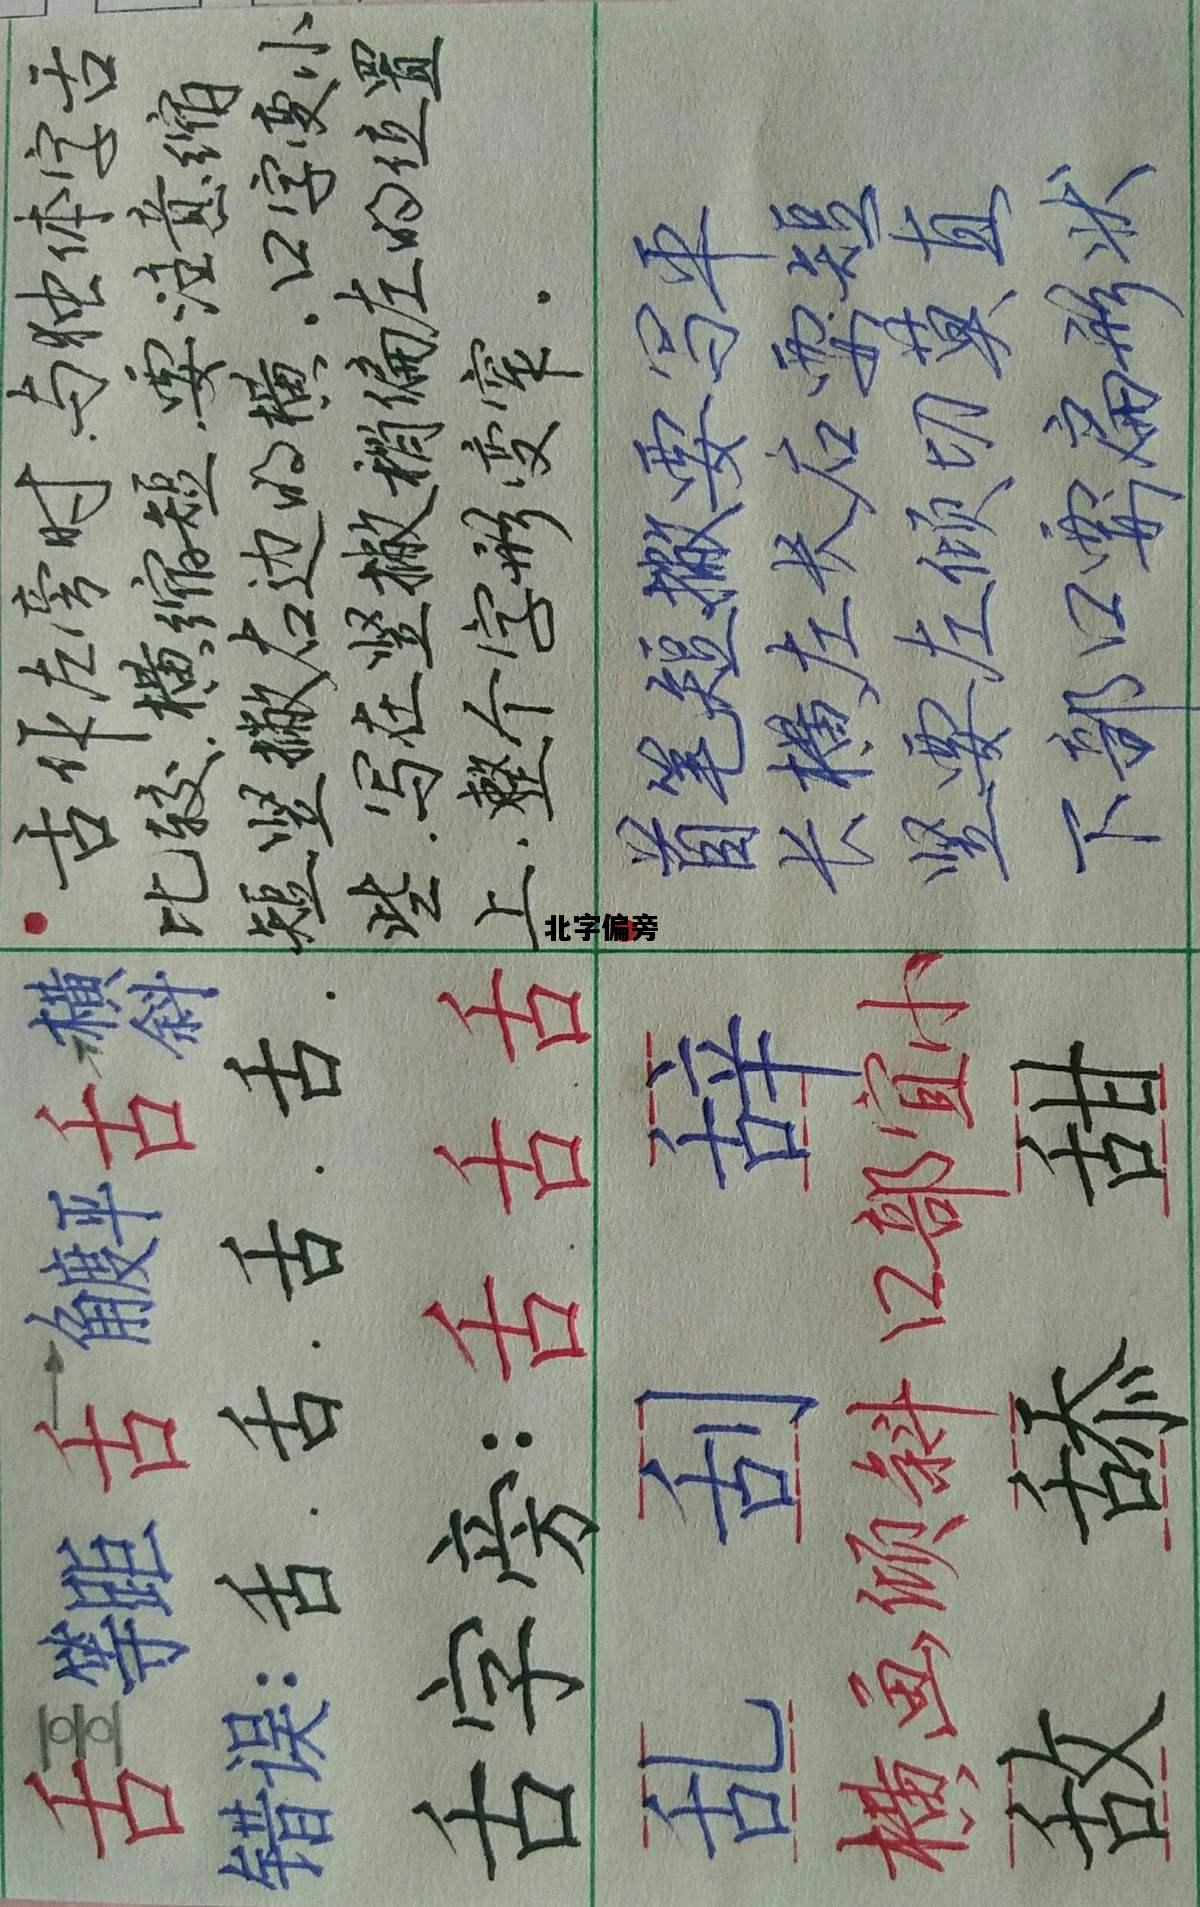 舌 等距 舌 角度平 舌 横斜
错误：舌．舌．舌．舌．
舌字旁：舌 舌 舌
乱 刮 辞
横画倾斜 口部宜小
敌 舔 甜
舌作左旁时．与独体字舌
比较．横缩短．要注意缩
短竖撇右边的横．口字变小
些．写在竖撇稍偏左的位置
上．整个字形变窄．
首笔短撇要写平
长横左长右要短
竖要左倾切莫直
下部口要扁形状
北字偏旁